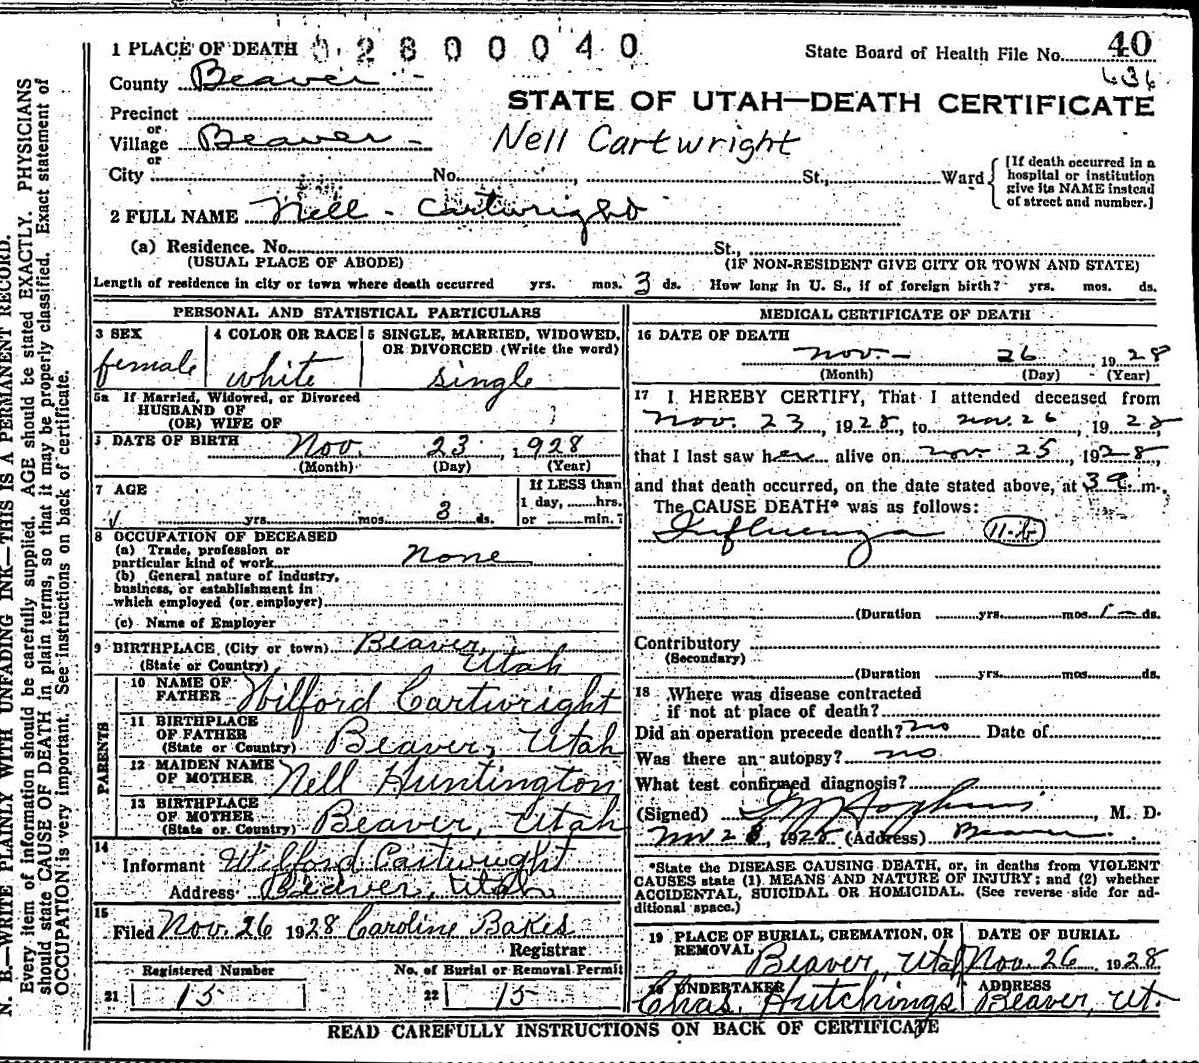 1 PLACE OF DEATH 0 2 8 0 0 0 4 0
State Board of Health File No. 40
636
County Beaver
STATE OF UTAH—DEATH CERTIFICATE
Precinct
or
Village Beaver
Nell Cartwright
or
City No. , St., Ward
[If death occurred in a
hospital or institution
give its NAME instead
of street and number.]
2 FULL NAME Nell - Cartwright
(a) Residence. No. St.,
(USUAL PLACE OF ABODE) (IF NON-RESIDENT GIVE CITY OR TOWN AND STATE)
Length of residence in city or town where death occurred yrs. mos. 3 ds. How long in U. S., if of foreign birth? yrs. mos. ds.
PERSONAL AND STATISTICAL PARTICULARS
3 SEX
female
4 COLOR OR RACE
white
5 SINGLE, MARRIED, WIDOWED,
OR DIVORCED (Write the word)
single
5a If Married, Widowed, or Divorced
HUSBAND OF
(OR) WIFE OF
DATE OF BIRTH Nov. 23, 1928
(Month) (Day) (Year)
7 AGE
yrs. mos. 3 ds.
If LESS than
1 day, hrs.
or min.?
8 OCCUPATION OF DECEASED
(a) Trade, profession or
particular kind of work none
(b) General nature of industry,
business, or establishment in
which employed (or employer)
(c) Name of Employer
9 BIRTHPLACE (City or town) Beaver,
(State or Country) Utah
PARENTS
10 NAME OF
FATHER Wilford Cartwright
11 BIRTHPLACE
OF FATHER
(State or Country) Beaver, Utah
12 MAIDEN NAME
OF MOTHER Nell Huntington
13 BIRTHPLACE
OF MOTHER
(State or Country) Beaver, Utah
14
Informant Wilford Cartwright
Address Beaver, Utah
15
Filed Nov. 26 1928 Caroline Bakes
Registrar
Registered Number No. of Burial or Removal Permit
21 15 22 15
MEDICAL CERTIFICATE OF DEATH
16 DATE OF DEATH
Nov. 26 1928
(Month) (Day) (Year)
17 I HEREBY CERTIFY, That I attended deceased from
Nov. 23, 1928, to Nov. 26, 1928
that I last saw her alive on Nov 25, 1928,
and that death occurred, on the date stated above, at 3 a. m.
The CAUSE DEATH* was as follows:
Influenza 11-b
(Duration yrs. mos. 1 ds.
Contributory
(Secondary)
(Duration yrs. mos. ds.
18 Where was disease contracted
if not at place of death?
Did an operation precede death? no Date of
Was there an autopsy? no
What test confirmed diagnosis?
(Signed) , M. D.
Nov 28, 1928 (Address) Beaver
*State the DISEASE CAUSING DEATH, or, in deaths from VIOLENT
CAUSES state (1) MEANS AND NATURE OF INJURY; and (2) whether
ACCIDENTAL, SUICIDAL OR HOMICIDAL. (See reverse side for ad-
ditional space.)
19 PLACE OF BURIAL, CREMATION, OR
REMOVAL
Beaver, Utah
DATE OF BURIAL
Nov. 26 1928
20 UNDERTAKER
Chas. Hutchings
ADDRESS
Beaver, Ut.
READ CAREFULLY INSTRUCTIONS ON BACK OF CERTIFICATE
N. B.—WRITE PLAINLY WITH UNFADING INK—THIS IS A PERMANENT RECORD.
Every item of information should be carefully supplied. AGE should be stated EXACTLY. PHYSICIANS
should state CAUSE OF DEATH in plain terms, so that it may be properly classified. Exact statement of
OCCUPATION is very important. See instructions on back of certificate.